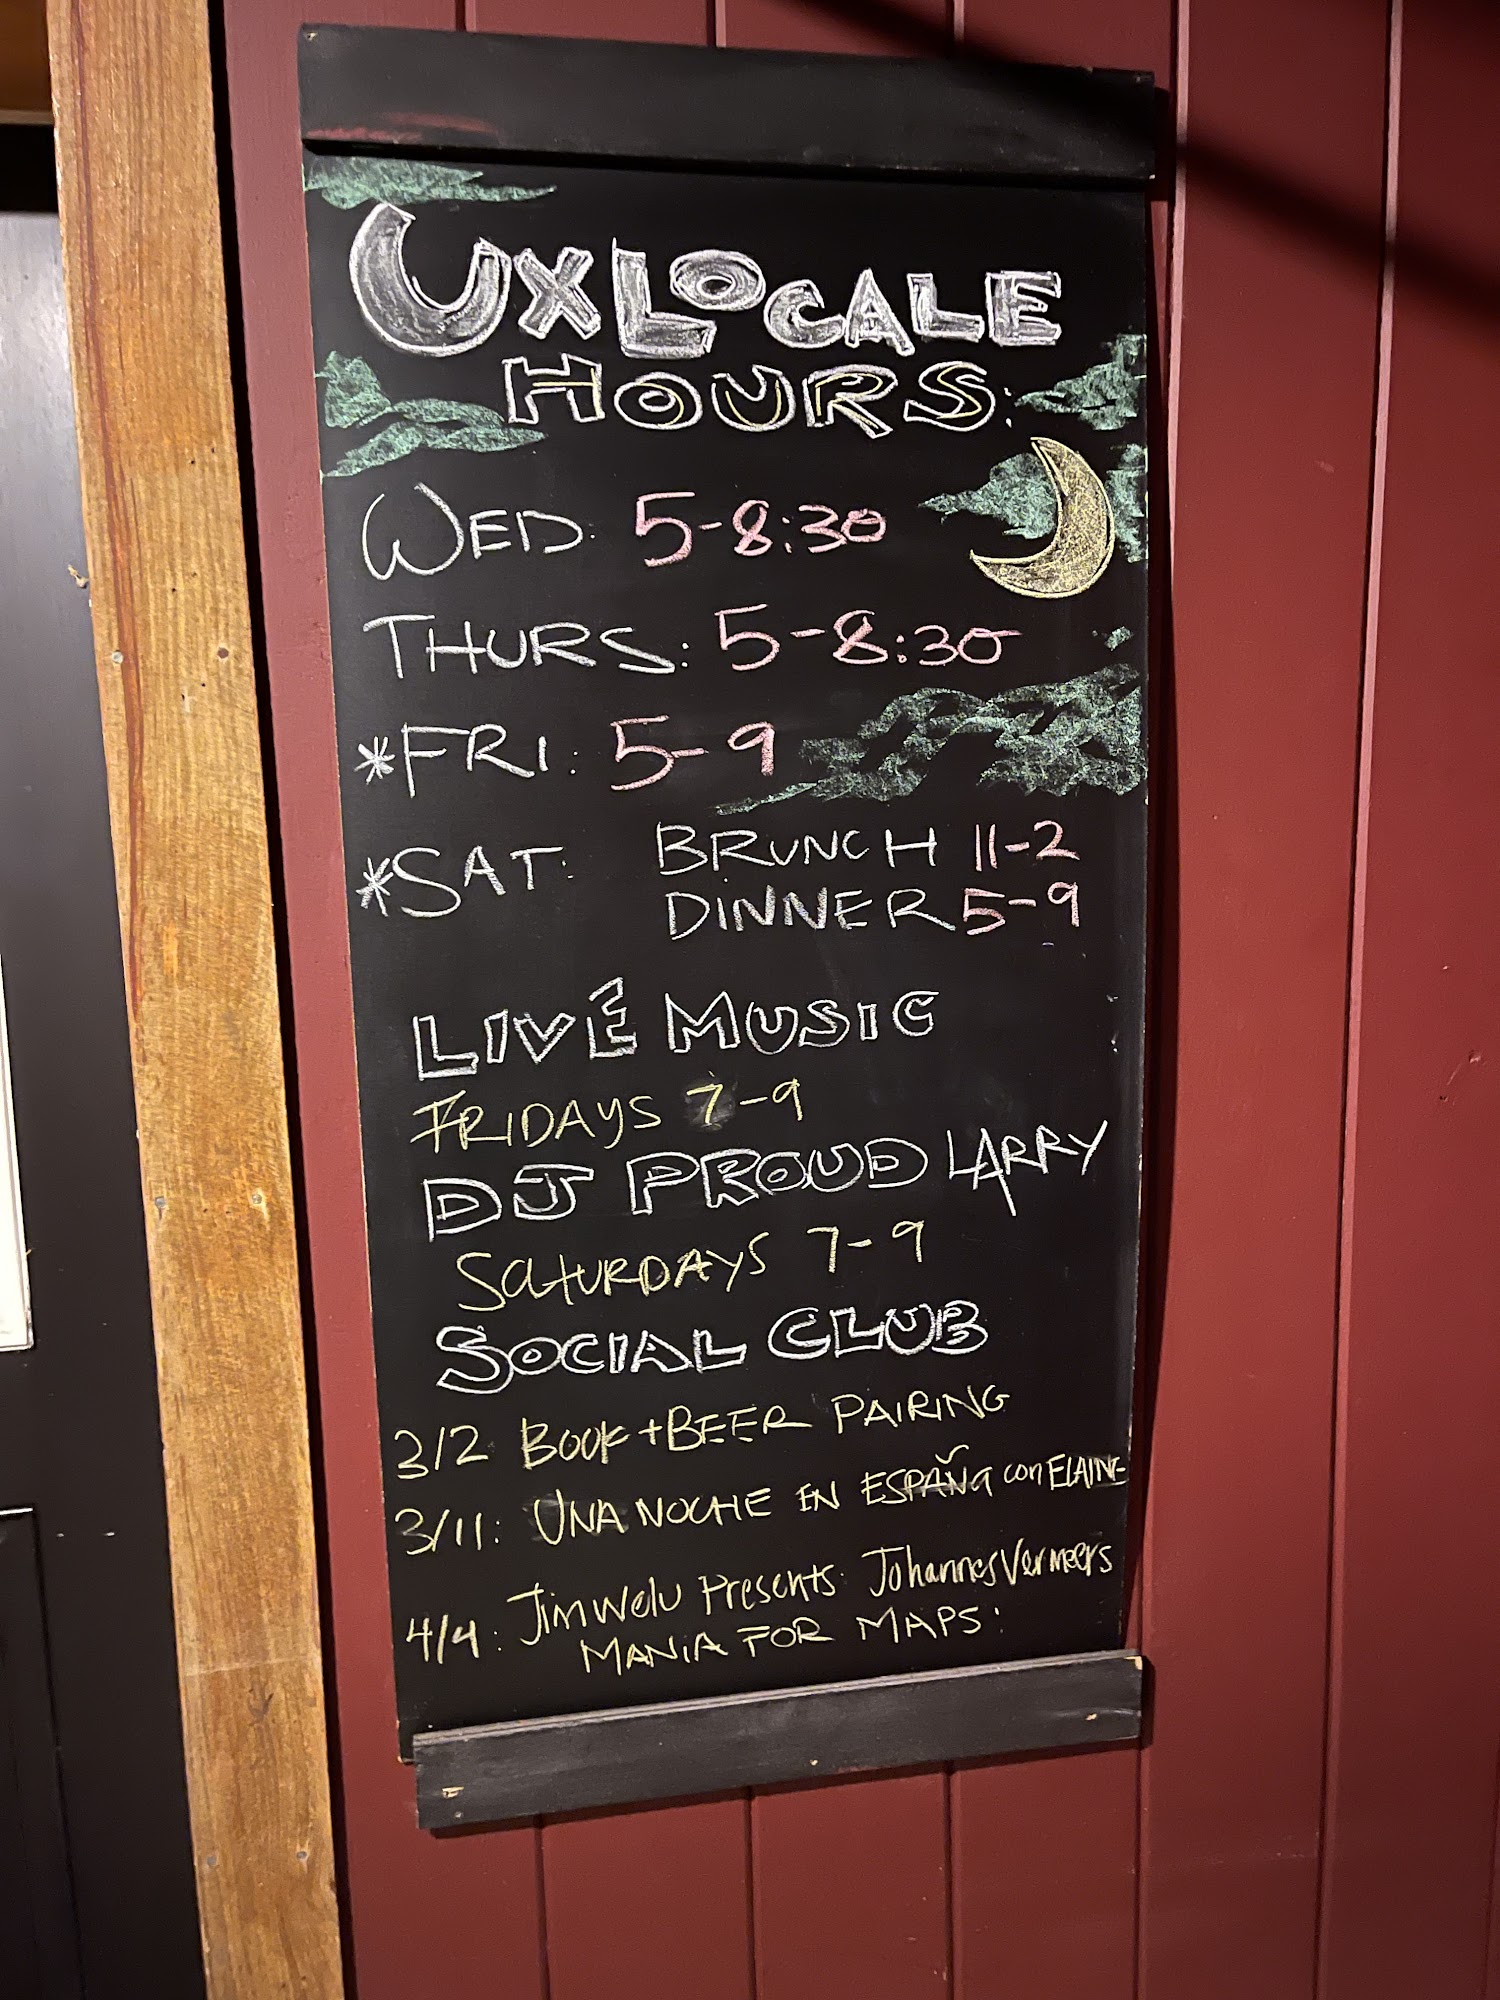 UXLOCALE
HOURS:
WED: 5-8:30
THURS: 5-8:30
*FRI: 5-9
*SAT: BRUNCH 11-2
DINNER 5-9
LIVE MUSIC
FRIDAYS 7-9
DJ PROUD LARRY
SATURDAYS 7-9
SOCIAL CLUB
3/2 BOOK+BEER PAIRING
3/11: UNA NOCHE EN ESPAÑA con ELAINE
4/4: Jim Welu Presents: Johannes Vermeers
MANIA FOR MAPS: